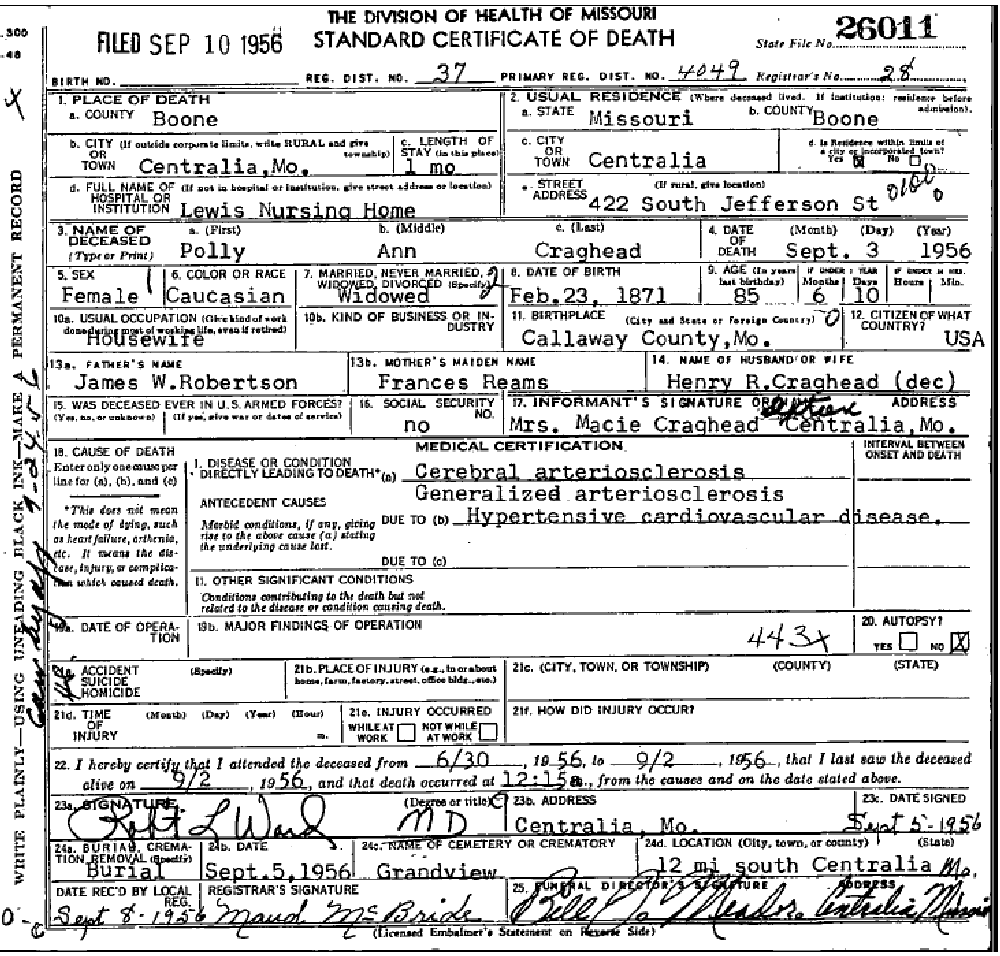 THE DIVISION OF HEALTH OF MISSOURI
STANDARD CERTIFICATE OF DEATH
FILED SEP 10 1956
State File No. 26011
BIRTH NO. REG. DIST. NO. 37 PRIMARY REG. DIST. NO. 4049 Registrar's No. 28
1. PLACE OF DEATH
a. COUNTY Boone
2. USUAL RESIDENCE (Where deceased lived. If institution: residence before admission).
a. STATE Missouri b. COUNTY Boone
b. CITY (If outside corporate limits, write RURAL and give township) OR TOWN Centralia, Mo.
c. LENGTH OF STAY (in this place) 1 mo
c. CITY OR TOWN Centralia
d. Is Residence within limits of a city or incorporated town? Yes No
d. FULL NAME OF HOSPITAL OR INSTITUTION (If not in hospital or institution, give street address or location) Lewis Nursing Home
e. STREET ADDRESS (If rural, give location) 422 South Jefferson St
3. NAME OF DECEASED (Type or Print)
a. (First) Polly b. (Middle) Ann c. (Last) Craghead
4. DATE OF DEATH (Month) (Day) (Year) Sept. 3 1956
5. SEX Female
6. COLOR OR RACE Caucasian
7. MARRIED, NEVER MARRIED, WIDOWED, DIVORCED (Specify) Widowed 2
8. DATE OF BIRTH Feb.23, 1871
9. AGE (In years last birthday) 85 IF UNDER 1 YEAR Months 6 Days 10 IF UNDER 24 HRS. Hours Min.
10a. USUAL OCCUPATION (Give kind of work done during most of working life, even if retired) Housewife
10b. KIND OF BUSINESS OR INDUSTRY
11. BIRTHPLACE (City and State or Foreign Country) Callaway County, Mo. 0
12. CITIZEN OF WHAT COUNTRY? USA
13a. FATHER'S NAME James W. Robertson
13b. MOTHER'S MAIDEN NAME Frances Reams
14. NAME OF HUSBAND OR WIFE Henry R. Craghead (dec)
15. WAS DECEASED EVER IN U.S. ARMED FORCES? (Yes, no, or unknown) (If yes, give war or dates of service)
16. SOCIAL SECURITY NO. no
17. INFORMANT'S SIGNATURE ADDRESS
Mrs. Macie Craghead Centralia, Mo.
18. CAUSE OF DEATH
Enter only one cause per line for (a), (b), and (c)
*This does not mean the mode of dying, such as heart failure, asthenia, etc. It means the disease, injury, or complication which caused death.
MEDICAL CERTIFICATION
INTERVAL BETWEEN ONSET AND DEATH
I. DISEASE OR CONDITION DIRECTLY LEADING TO DEATH* (a) Cerebral arteriosclerosis
Generalized arteriosclerosis
ANTECEDENT CAUSES
Morbid conditions, if any, giving rise to the above cause (a) stating the underlying cause last.
DUE TO (b) Hypertensive cardiovascular disease.
DUE TO (c)
II. OTHER SIGNIFICANT CONDITIONS
Conditions contributing to the death but not related to the disease or condition causing death.
19a. DATE OF OPERATION
19b. MAJOR FINDINGS OF OPERATION
443X
20. AUTOPSY? YES NO X
ACCIDENT SUICIDE HOMICIDE (Specify)
21b. PLACE OF INJURY (e.g., in or about home, farm, factory, street, office bldg., etc.)
21c. (CITY, TOWN, OR TOWNSHIP) (COUNTY) (STATE)
21d. TIME OF INJURY (Month) (Day) (Year) (Hour) m.
21e. INJURY OCCURRED WHILE AT WORK NOT WHILE AT WORK
21f. HOW DID INJURY OCCUR?
22. I hereby certify that I attended the deceased from 6/30, 1956, to 9/2, 1956, that I last saw the deceased
alive on 9/2, 1956, and that death occurred at 12:15a m., from the causes and on the date stated above.
23a. SIGNATURE (Degree or title) Robt L Ward MD
23b. ADDRESS Centralia, Mo.
23c. DATE SIGNED Sept 5-1956
24a. BURIAL, CREMATION, REMOVAL (Specify) Burial
24b. DATE Sept.5,1956
24c. NAME OF CEMETERY OR CREMATORY Grandview
24d. LOCATION (City, town, or county) (State) 12 mi south Centralia Mo.
DATE REC'D BY LOCAL REG. Sept 8-1956
REGISTRAR'S SIGNATURE Maud McBride
25. FUNERAL DIRECTOR'S SIGNATURE ADDRESS
Meador, Centralia Missouri
(Licensed Embalmer's Statement on Reverse Side)
WRITE PLAINLY—USING UNFADING BLACK INK—MAKE A PERMANENT RECORD